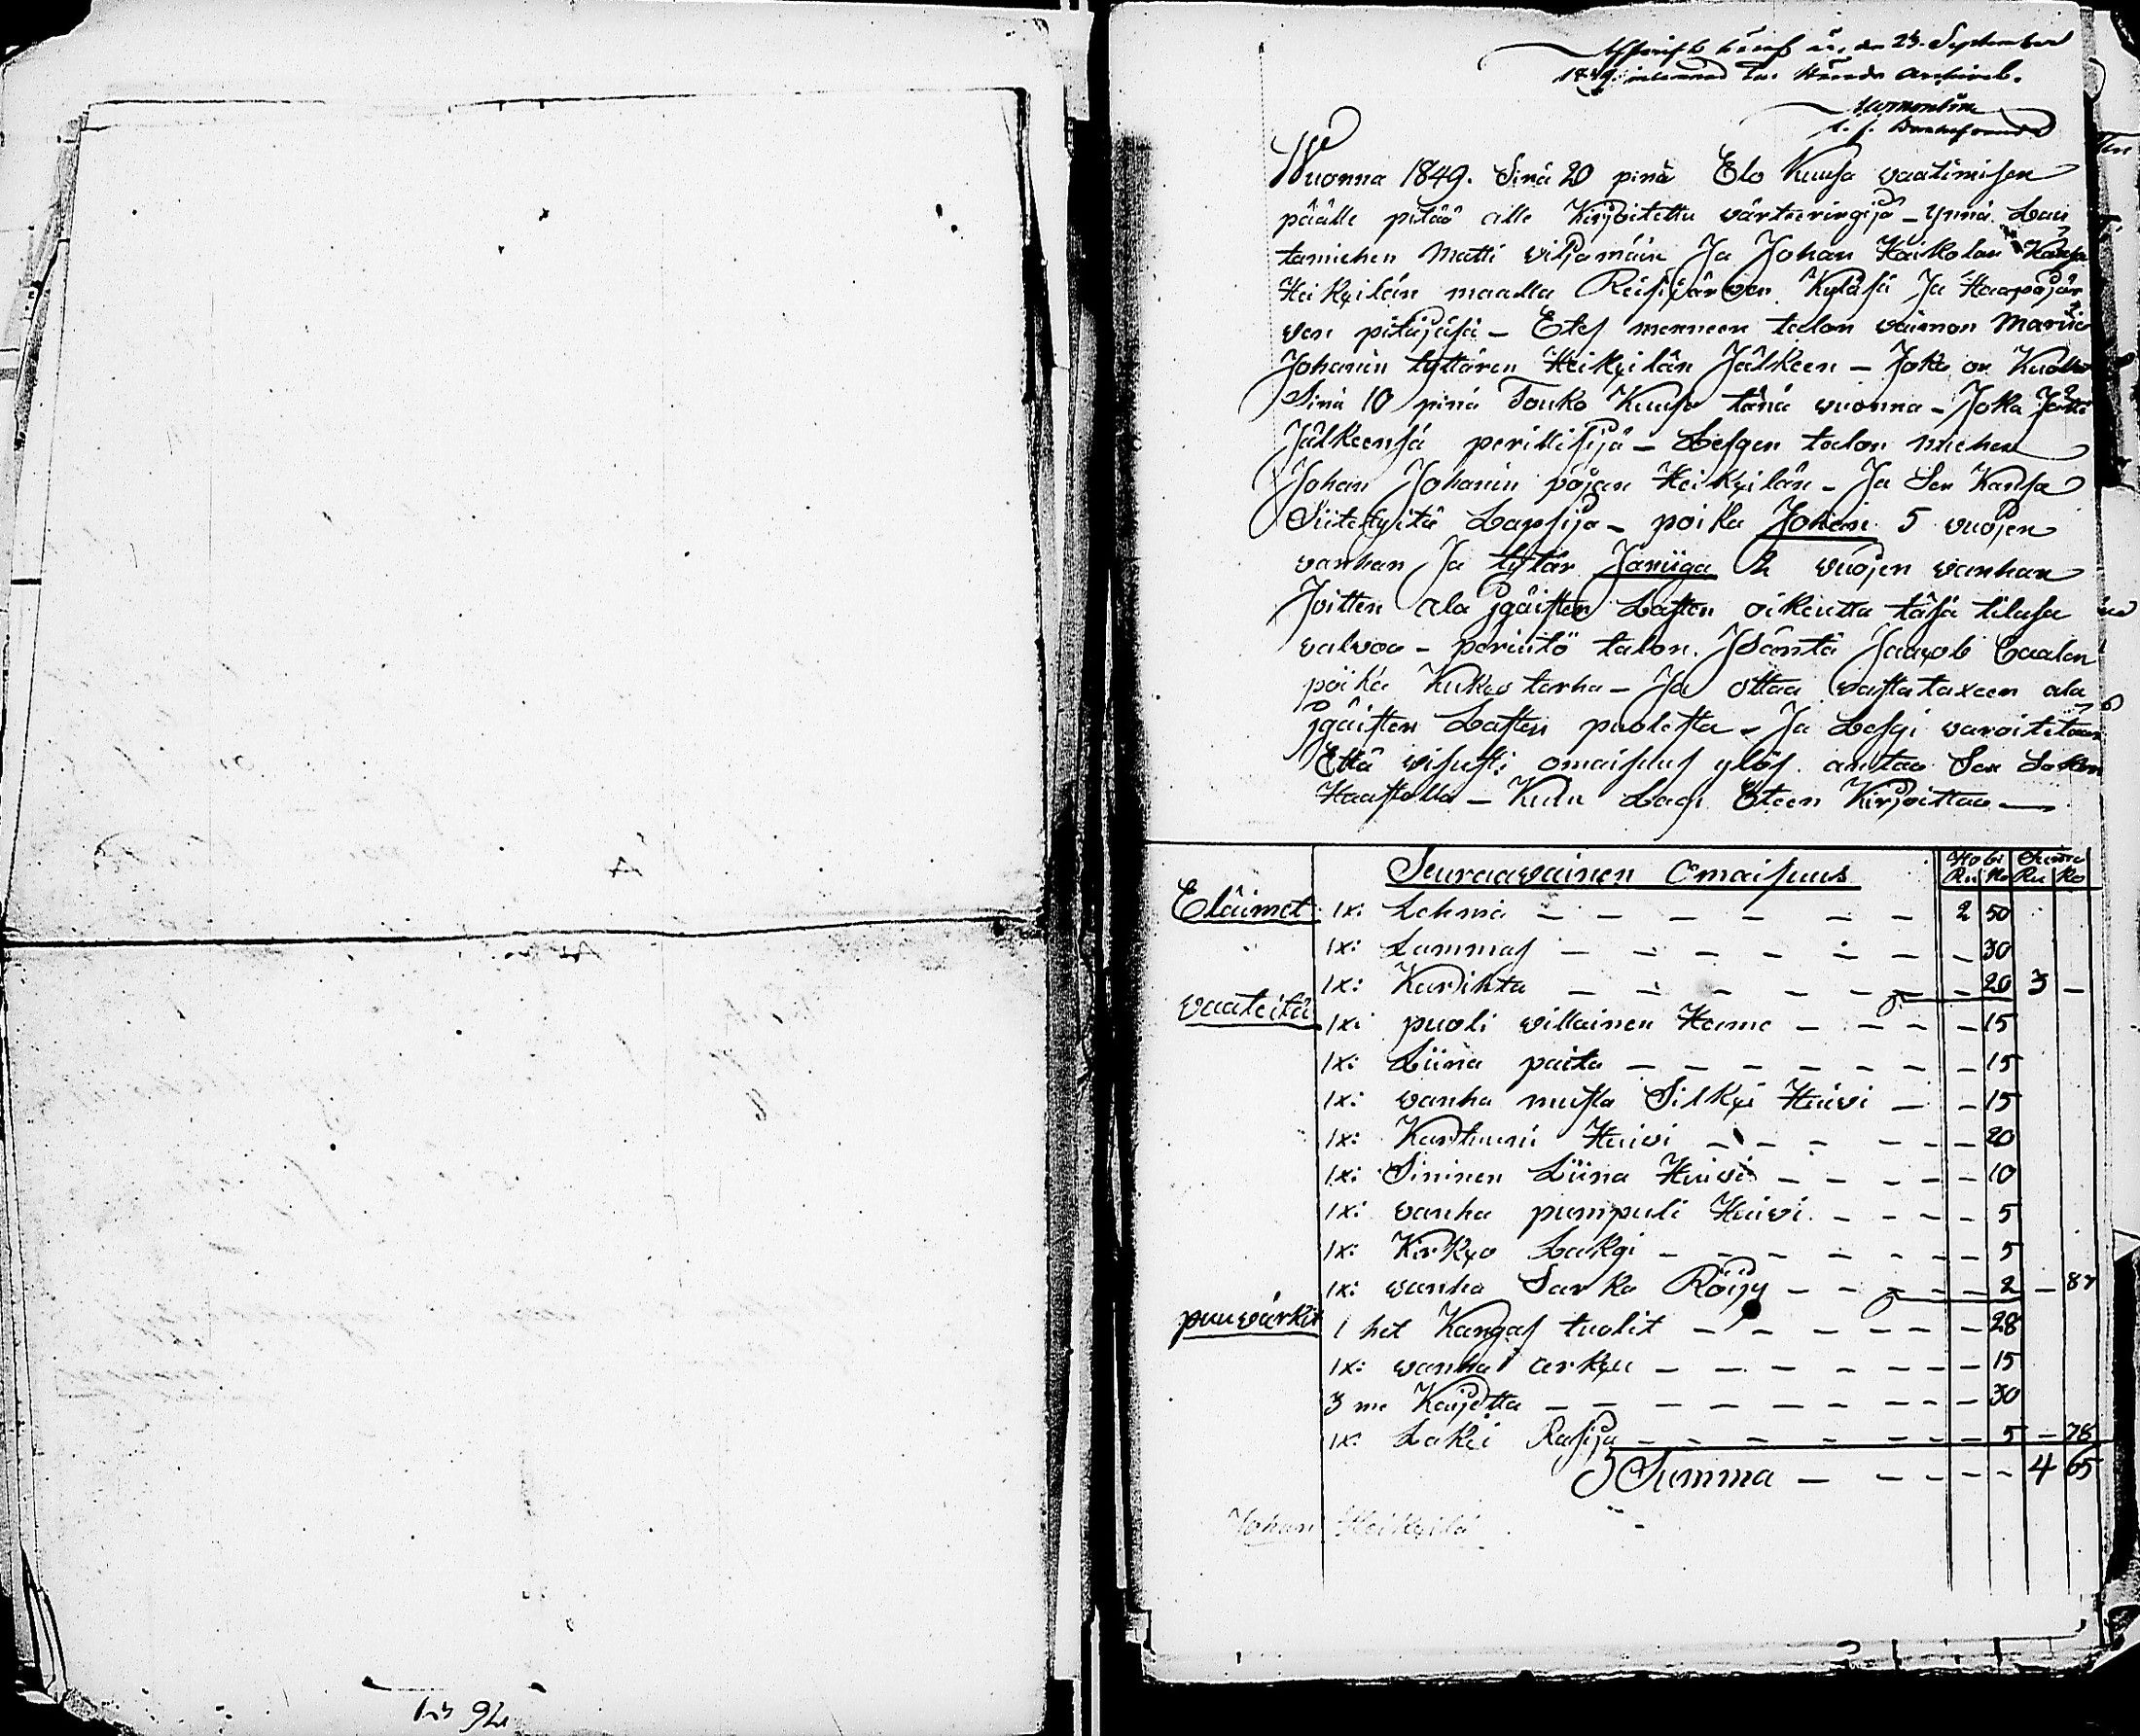 den 23. September
1849. Härads archivet.
Wuonna 1849. Sinä 20 pnä Elo Kuusa vaatimisen
päälle pitää alle Kirjoitettu värteeringijä - ynnä Lau
tamiehen Matti viljamäin Ja Johan Kaikolan Kansa
Heikyilän maalla Reisijärven Kyläsä Ja Haapajär
ven pitäjäsä - Etes menneen talon vaimon Mariia
Johanin tyttären Heikyilän Jälkeen - Joka on Kuollu
Sinä 10 pnä Touko Kuusa tänä vuonna - Joka Jätti
Jälkeensä perillisijä - Lesgen talon miehen
Johan Johanin pojan Heikyilän - Ja Sen Kansa
Siitetyitä Lapsija - poika Johan 5 vuojen
vanhan Ja tytär Janiiga 2 vuojen vanhan
Joitten ala jgäisten Lasten oikeutta täsä tilasa
valvoa - perintö talon Jsäntä Jaacob Caalen
poika Kukyo tarha - Ja ottaa vastataxeen ala
jgäisten Lasten puolesta - Ja Lesgi varoitetaan
Että visusti omaisuus ylös antaa Sen Sakon
Haastolla - Kuin Lagi Eteen Kirjoittaa
Seuraavainen Omaisuus Ho bi Suma
Ru Ko Ru Ko
Eläimet 1x: Lehmä - - - - - - 2 50
1x: Lammas - - - - - - - 30
1x: Karihta - - - - - - - 20 3 -
vaateitä 1x: puoli villainen Hame - - - - 15
1x: Liina paita - - - - - - - - 15
1x: vanha musta Silkyi Huivi - - 15
1x: Karthuuni Huivi - - - - - - 20
1x: Sininen Liina Huivi - - - - - 10
1x: vanha pumpuli Huivi - - - - 5
1x: Kirkyo Lakgi - - - - - - - - 5
1x: vanha Sarka Röijy - - - - - 2 - 87
puuvärkit 1 het Kangas tuolit - - - - - - - 28
1x: vanha arkyu - - - - - - - - 15
3 me Kaijetta - - - - - - - - - 30
1x: Lakei Rasija - - - - - - - 5 - 78
Summa - - - - - 4 65
Johan Heikyilä